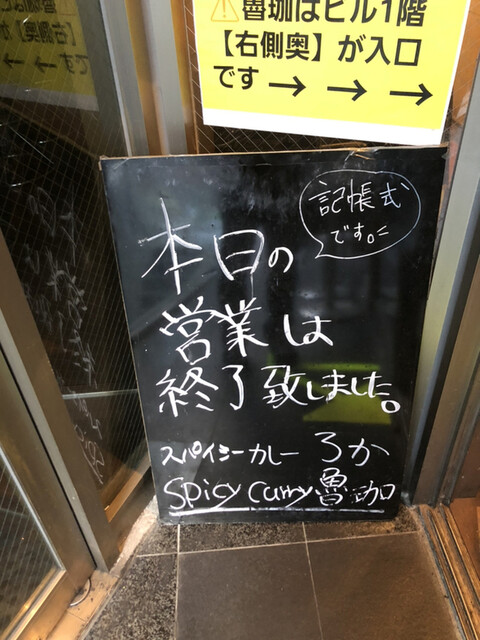 ⚠魯珈はビル1階
【右側奥】が入口
です→ → →
記帳式
です。
本日の
営業は
終了致しました。
スパイシーカレー ろか
Spicy Curry 魯珈